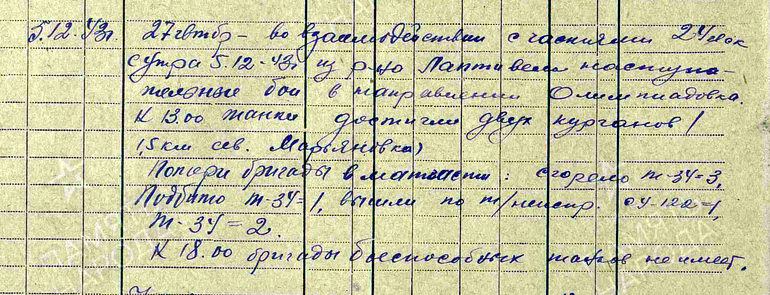 5.12.43г. 27 гвтбр - во взаимодействии с частями 24 ск
с утра 5.12-43г из р-на Лаптивела наступа-
тельные бои в направлении Олимпиадовка.
К 13.00 танки достигли двух курганов /
1,5 км сев. Марьяновка)
Потери бригады в матчасти: сгорело т-34=3,
Подбито т-34=1, вышли по т/неиспр. су-122=1,
т-34=2.
К 18.00 бригады боеспособных танков не имеет.